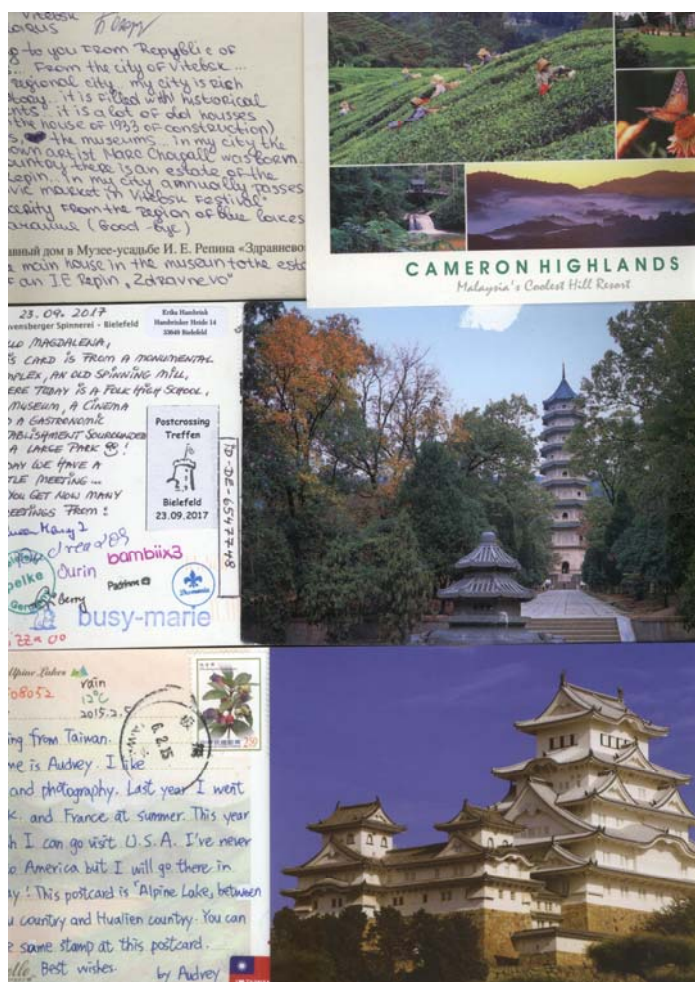 Vitebsk
g to you from Republic of
... From the city of Vitebsk...
regional city, my city is rich
it is filled with historical
nts. it is a lot of old housses
the house of 1933 of construction)
s, the museums... in my city the
own artist Marc Chagall was born
ountry there is an estate of the
epin... in my city annually passes
vic market in Vitebsk Festival"
cerity from the region of blue
(Good-bye)
авный дом в Музее-усадьбе И. Е. Репина «Здравнево
main house in the museum to the esta
f an I.E Repin, „Zdravnevo"
CAMERON HIGHLANDS
Malaysia's Coolest Hill Resort
23.09.2017
avensberger Spinnerei - Bielefeld
Erika Handrink
Heide 14
Bielefeld
LO MAGDALENA,
S CARD IS FROM A MONUMENTAL
PLEX, AN OLD SPINNING MILL,
ERE TODAY IS A FOLK HIGH SCHOOL,
MUSEUM, A CINEMA
A GASTRONOMIC
TABLISHMENT SOUROUNDED
A LARGE PARK !
DAY WE HAVE A
TLE MEETING...
YOU GET NOW MANY
EETINGS FROM:
Postcrossing
Treffen
Bielefeld
23.09.2017
ID-DE-6547748
bambiix3
Ourin
elke
German
Berry
busy-marie
izza 00
Alpine Lakes
08052
rain
12°C
2015.2.5
6.2.15
250
ing from Taiwan.
me is Audrey. I like
and photography. Last year I went
k. and France at summer. This year
h I can go visit U.S.A. I've never
o America but I will go there in
ay! This postcard is "Alpine Lake, between
u country and Hualien country. You can
e same stamp at this postcard.
Best wishes. by Audrey